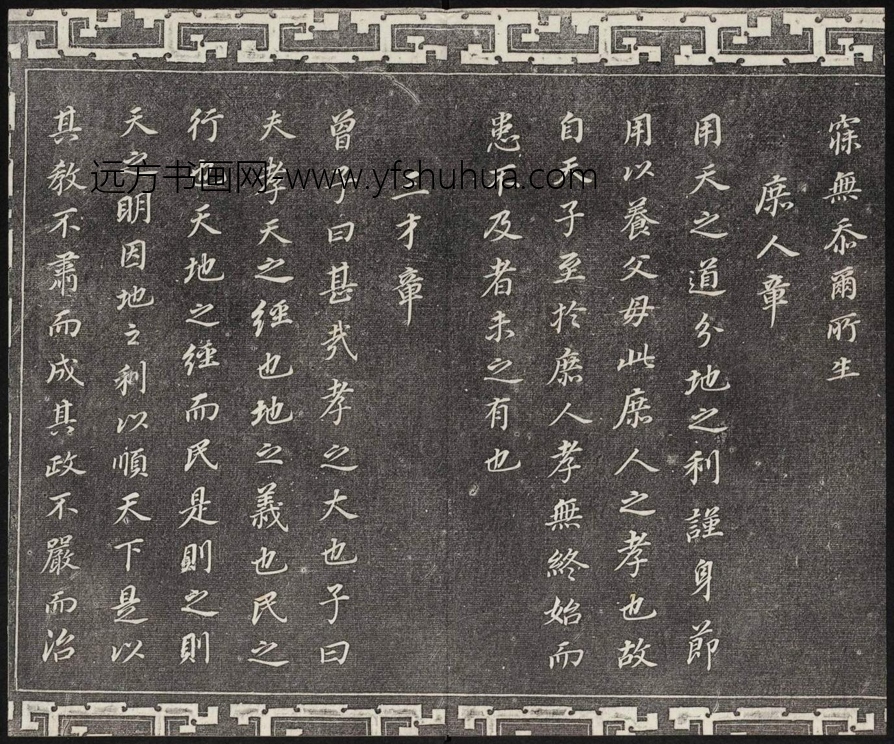 寐無忝爾所生
庶人章
用天之道分地之利謹身節
用以養父母此庶人之孝也故
自天子至於庶人孝無終始而
患不及者未之有也
三才章
曾子曰甚哉孝之大也子曰
夫孝天之經也地之義也民之
行也天地之經而民是則之則
天之明因地之利以順天下是以
其教不肅而成其政不嚴而治
远方书画网-www.yfshuhua.com